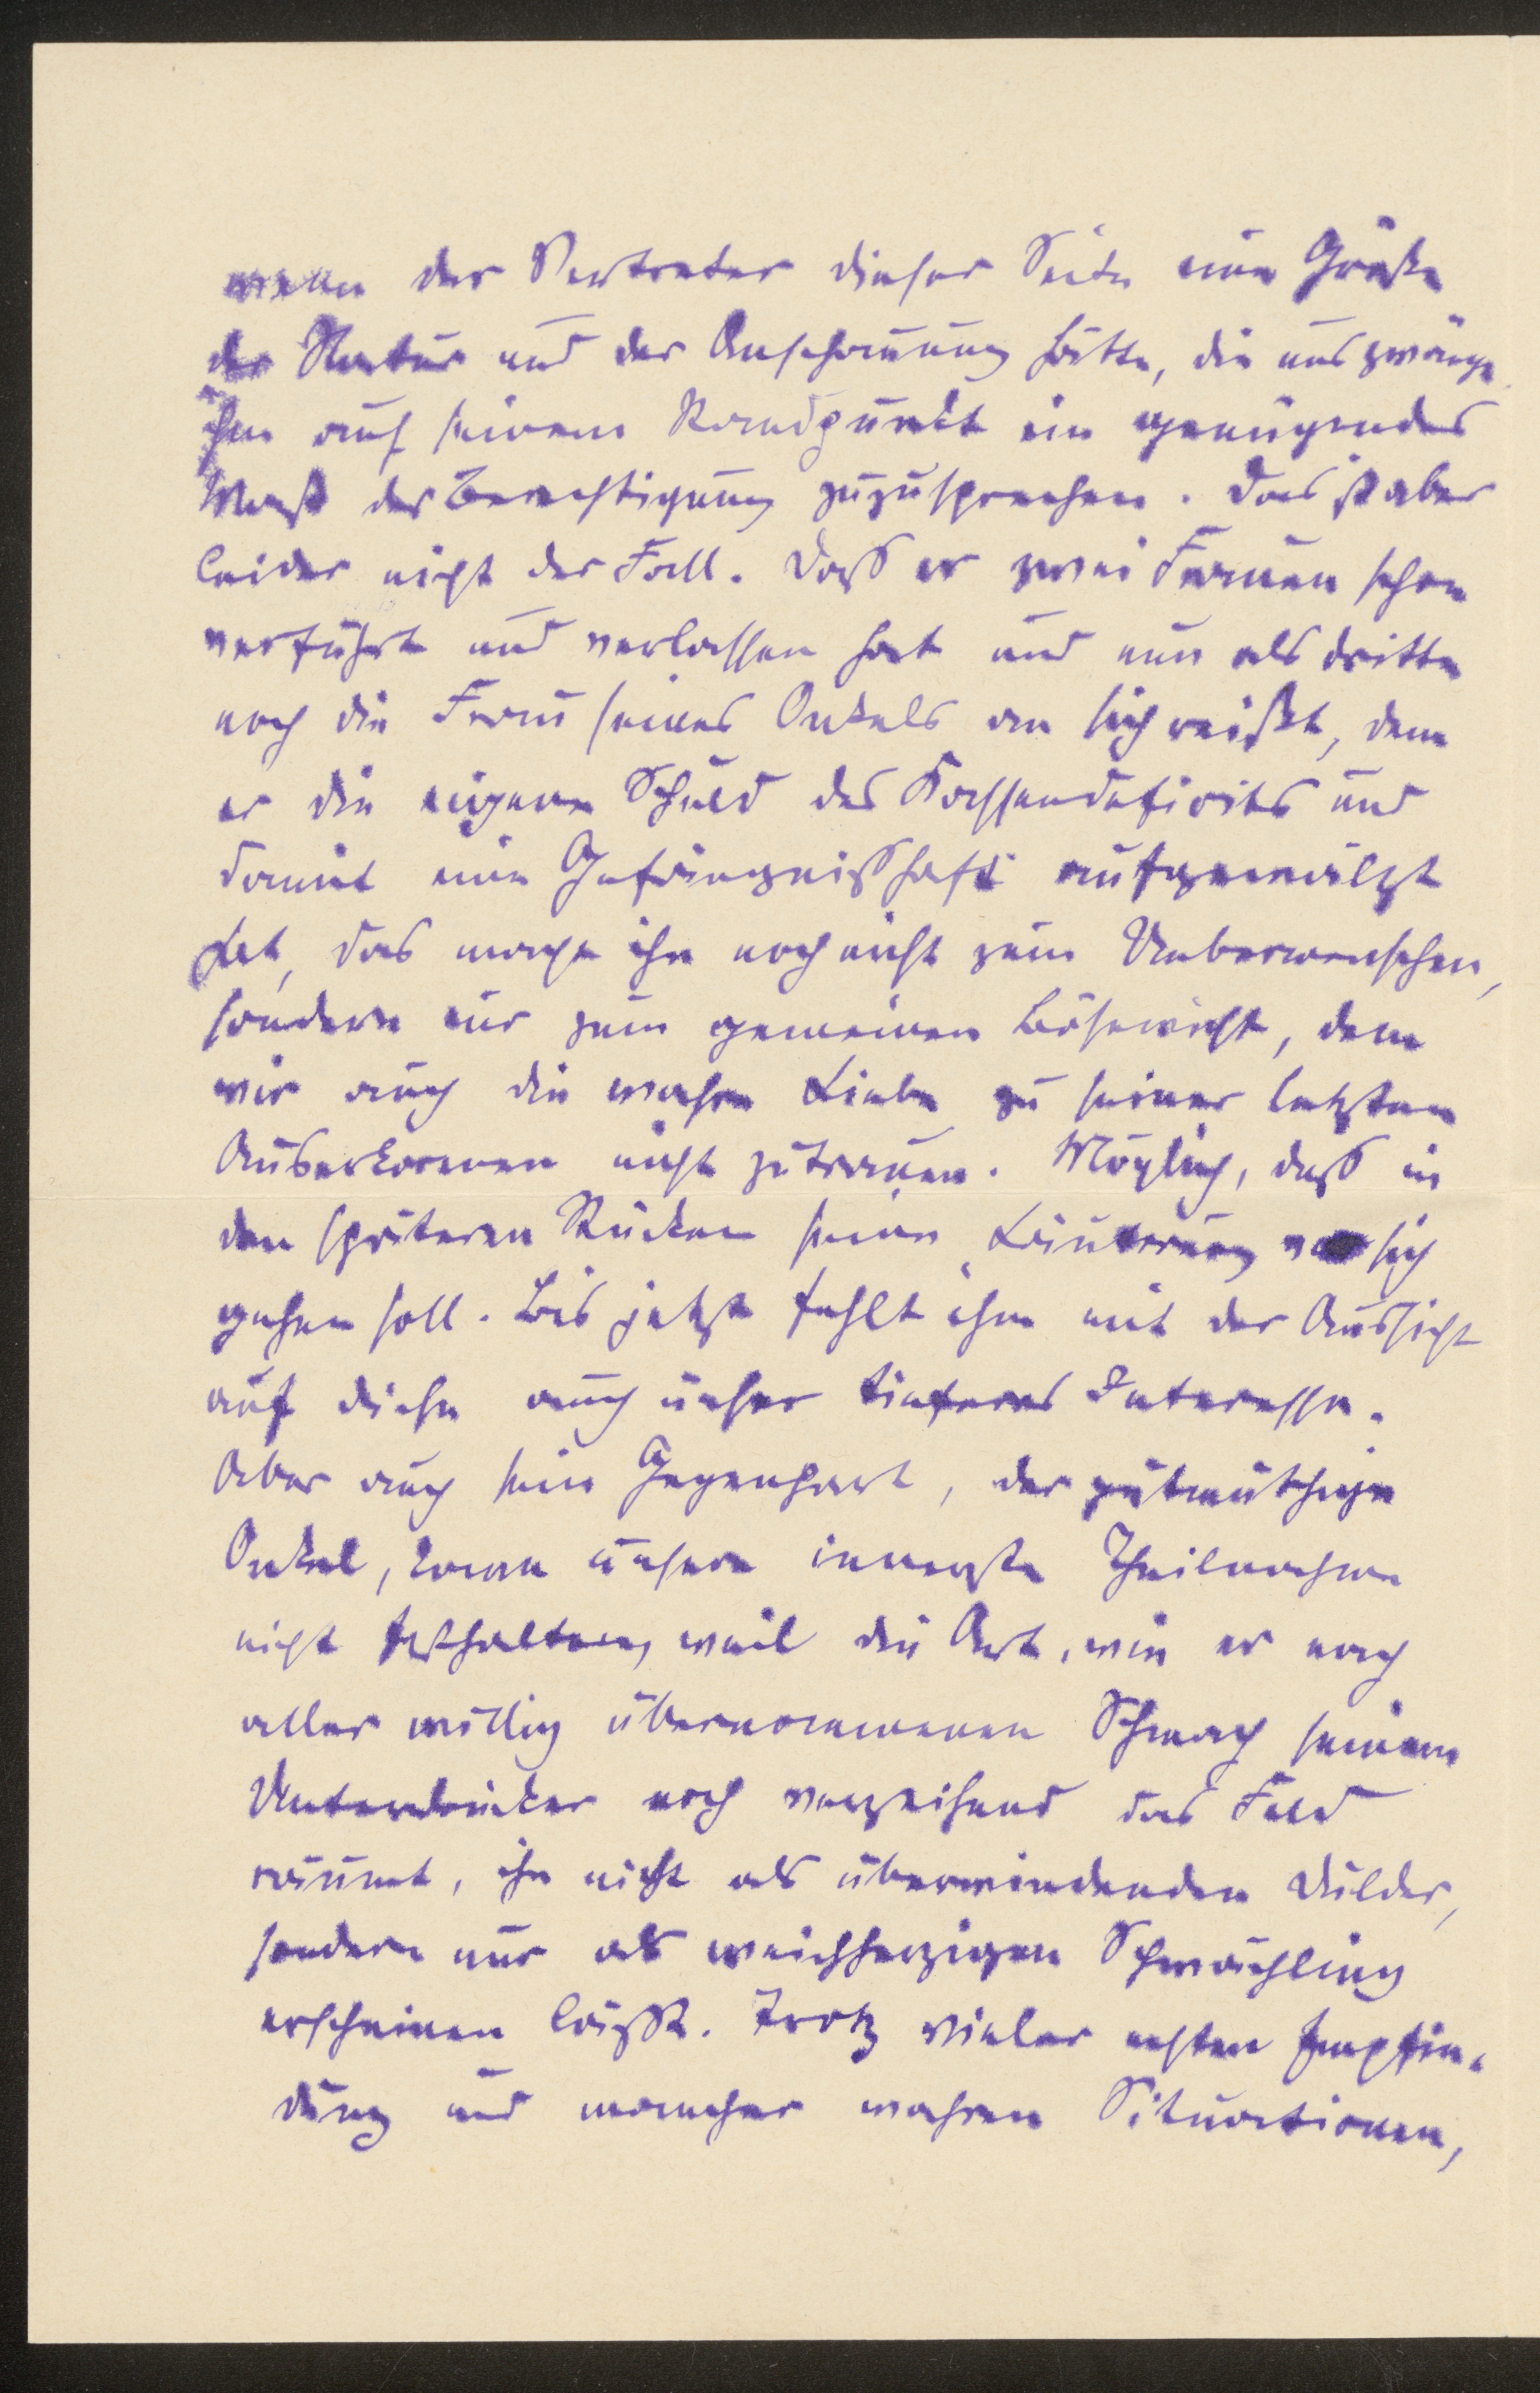 wenn der Vertreter dieser Seite eine Größe
der Natur und der Anschauung hätte, die uns zwänge
ihm auf seinem Standpunkt ein genügendes
Maß der Berechtigung zuzusprechen. Das ist aber
leider nicht der Fall. Daß er zwei Frauen schon
verführt und verlassen hat und nun als dritte
noch die Frau seines Onkels an sich reißt, dem
er die eigene Schuld des Kassendeficits und
damit eine Gefängnißhaft aufgewälzt
hat, das macht ihn noch nicht zum Uebermenschen,
sondern nur zum gemeinen Bösewicht, dem
wir auch die wahre Liebe zu seiner letzten
Auserkorenen nicht zutrauen. Möglich, daß in
den späteren Stücken seine Läuterung vor sich
gehen soll. Bis jetzt fehlt ihm mit der Aussicht
auf diese auch unser tieferes Interesse.
Aber auch sein Gegenpart, der gutmüthige
Onkel, kann unsere innerste Theilnahme
nicht festhalten, weil die Art, wie er nach
aller willig übernommenen Schmach seinem
Unterdrücker noch verzeihend das Feld
räumt, ihn nicht als überwindenden Dulder,
sondern nur als weichherzigen Schwächling
erscheinen läßt. Trotz vieler echten Empfin-
dung und mancher wahren Situationen,